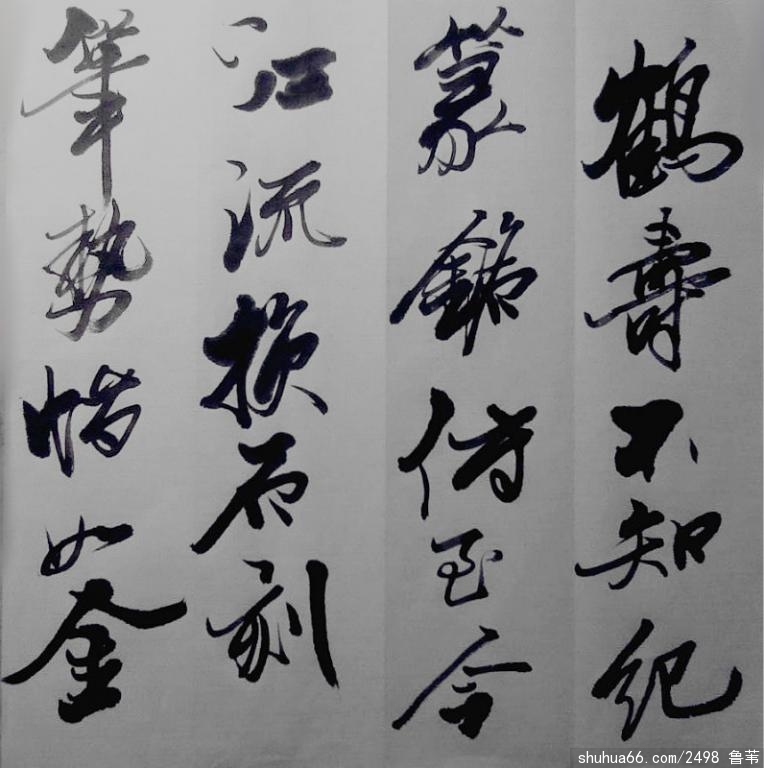 鶴壽不知紀
篆銘傳至今
江流損石刻
筆勢惜如金
shuhua66.com/2498 鲁苇